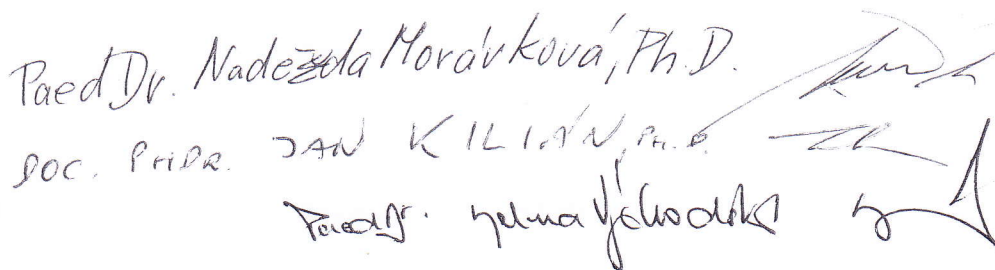 PaedDr. Naděžda Morávková, Ph.D.
DOC. PHDR. JAN KILIÁN, PH.D.
PaedDr. Helena Východská